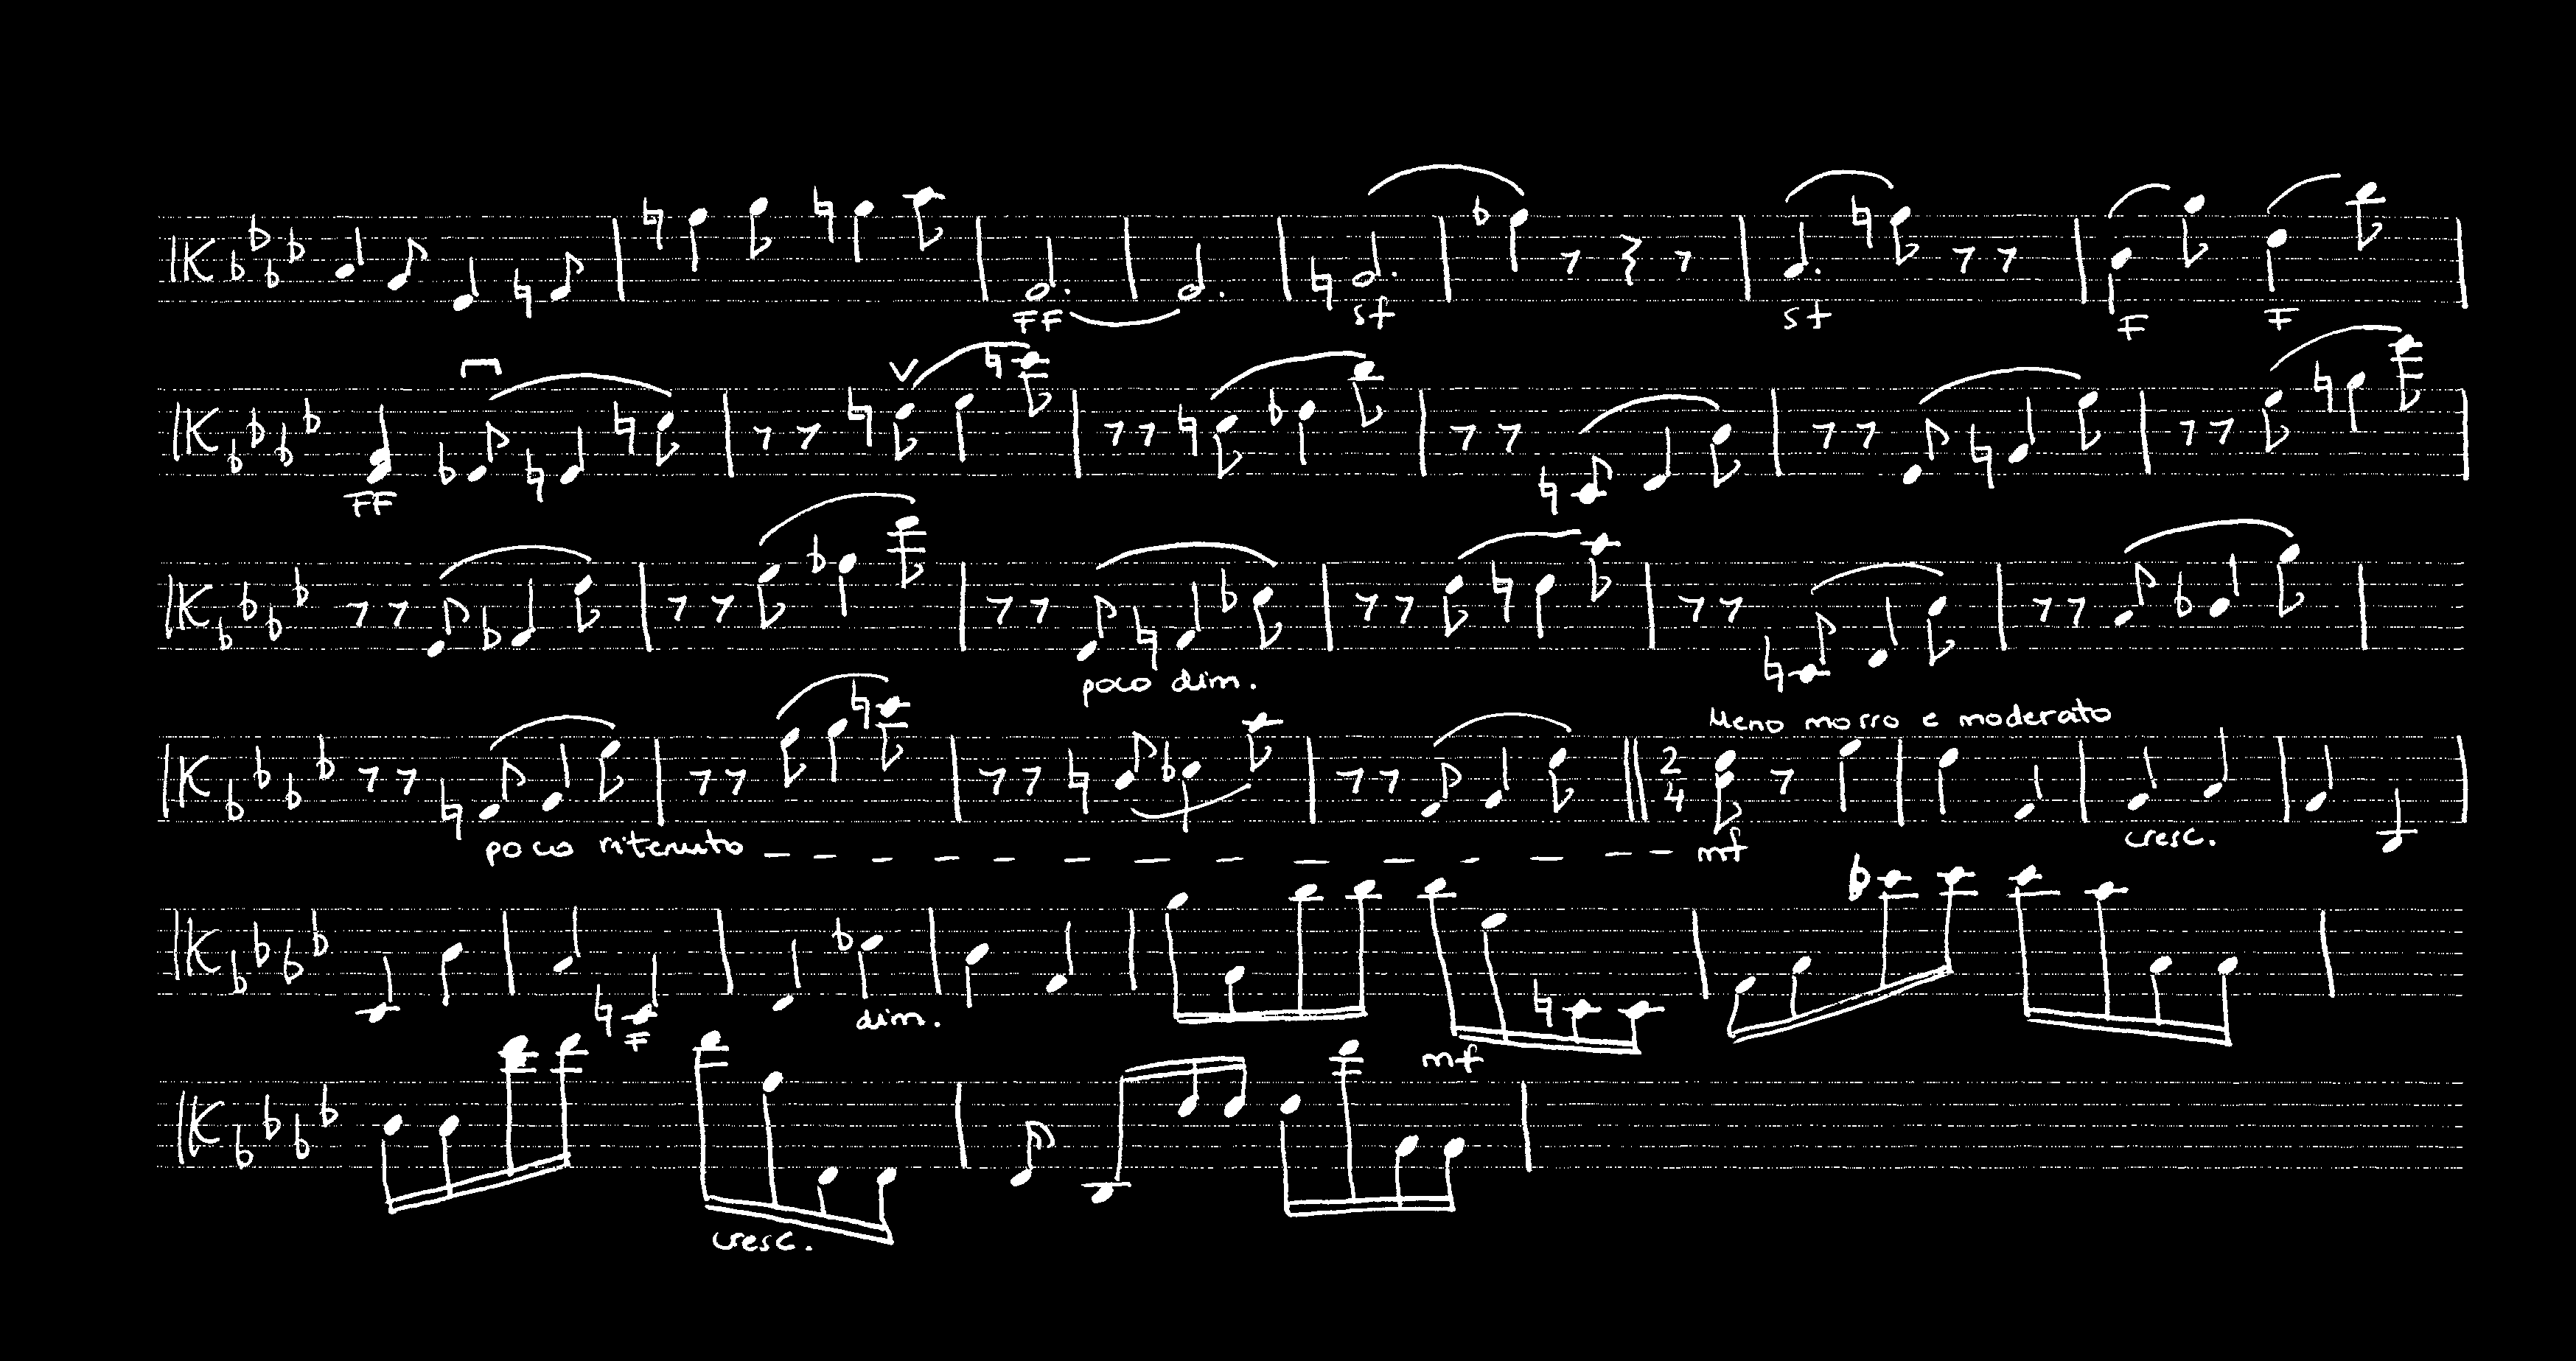 FF sf sf F F
FF
poco dim.
Meno mosso e moderato
2/4
poco ritenuto mf cresc.
F dim. mf
cresc.